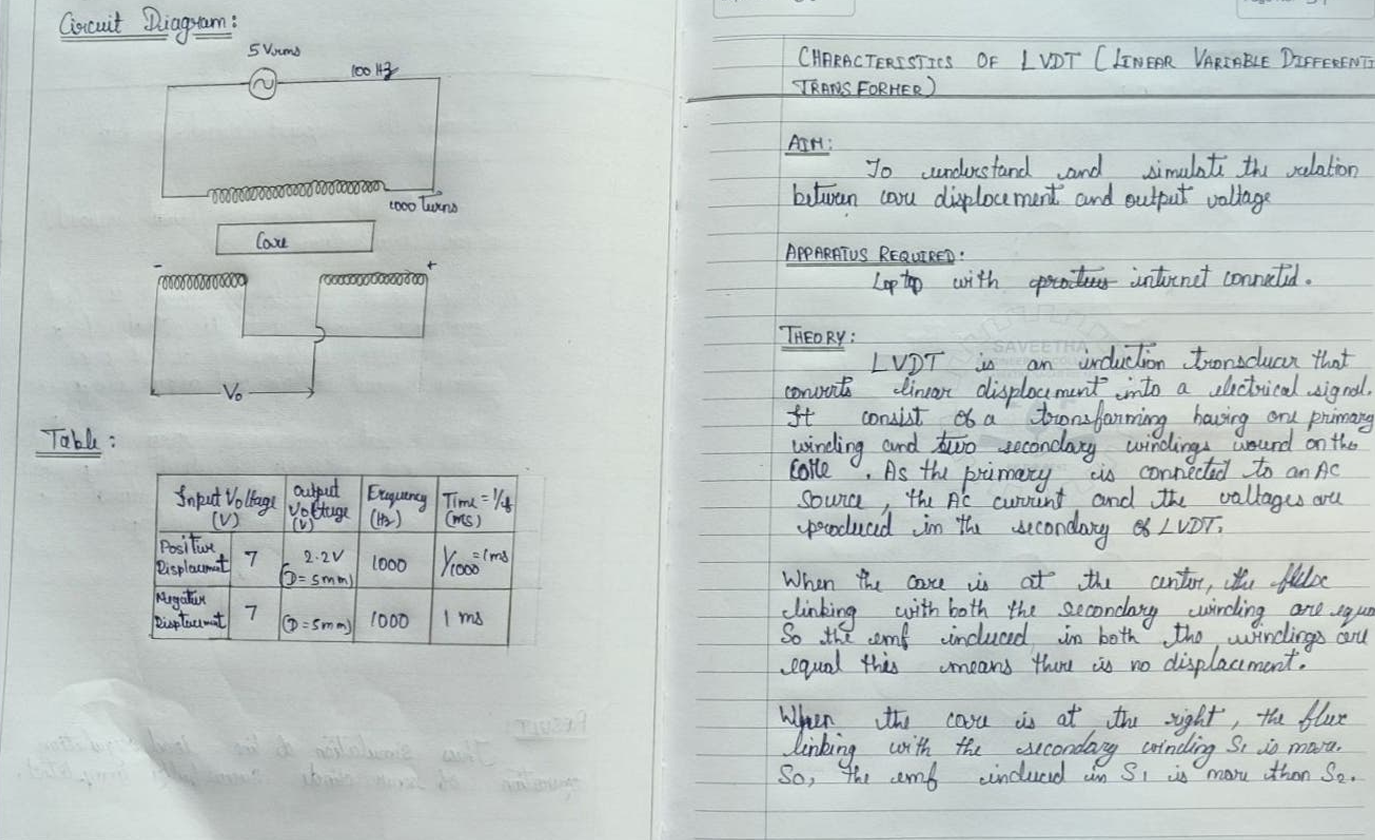 Circuit Diagram:
5 Vrms
100 Hz
1000 Turns
Core
- +
Vo
Table:
Input Voltage (V) | Output Voltage (V) | Frequency (Hz) | Time = 1/f (ms)
Positive Displacement | 7 | 2.2V (D=5mm) | 1000 | 1/1000 = 1ms
Negative Displacement | 7 | (D=5mm) | 1000 | 1 ms
CHARACTERISTICS OF LVDT (LINEAR VARIABLE DIFFERENTI
TRANSFORMER)
AIM:
To understand and simulate the relation
between core displacement and output voltage
APPARATUS REQUIRED:
Laptop with proteus internet connected.
THEORY:
SAVEETHA
LVDT is an induction transducer that
converts linear displacement into a electrical signal.
It consist of a transforming having one primary
winding and two secondary windings wound on the
core. As the primary is connected to an AC
source, the AC current and the voltages are
produced in the secondary of LVDT.
When the core is at the center, the flux
linking with both the secondary winding are equa
So the emf induced in both the windings are
equal this means there is no displacement.
When the core is at the right, the flux
linking with the secondary winding S1 is more.
So, the emf induced in S1 is more than S2.
RESULT:
Thus simulation to